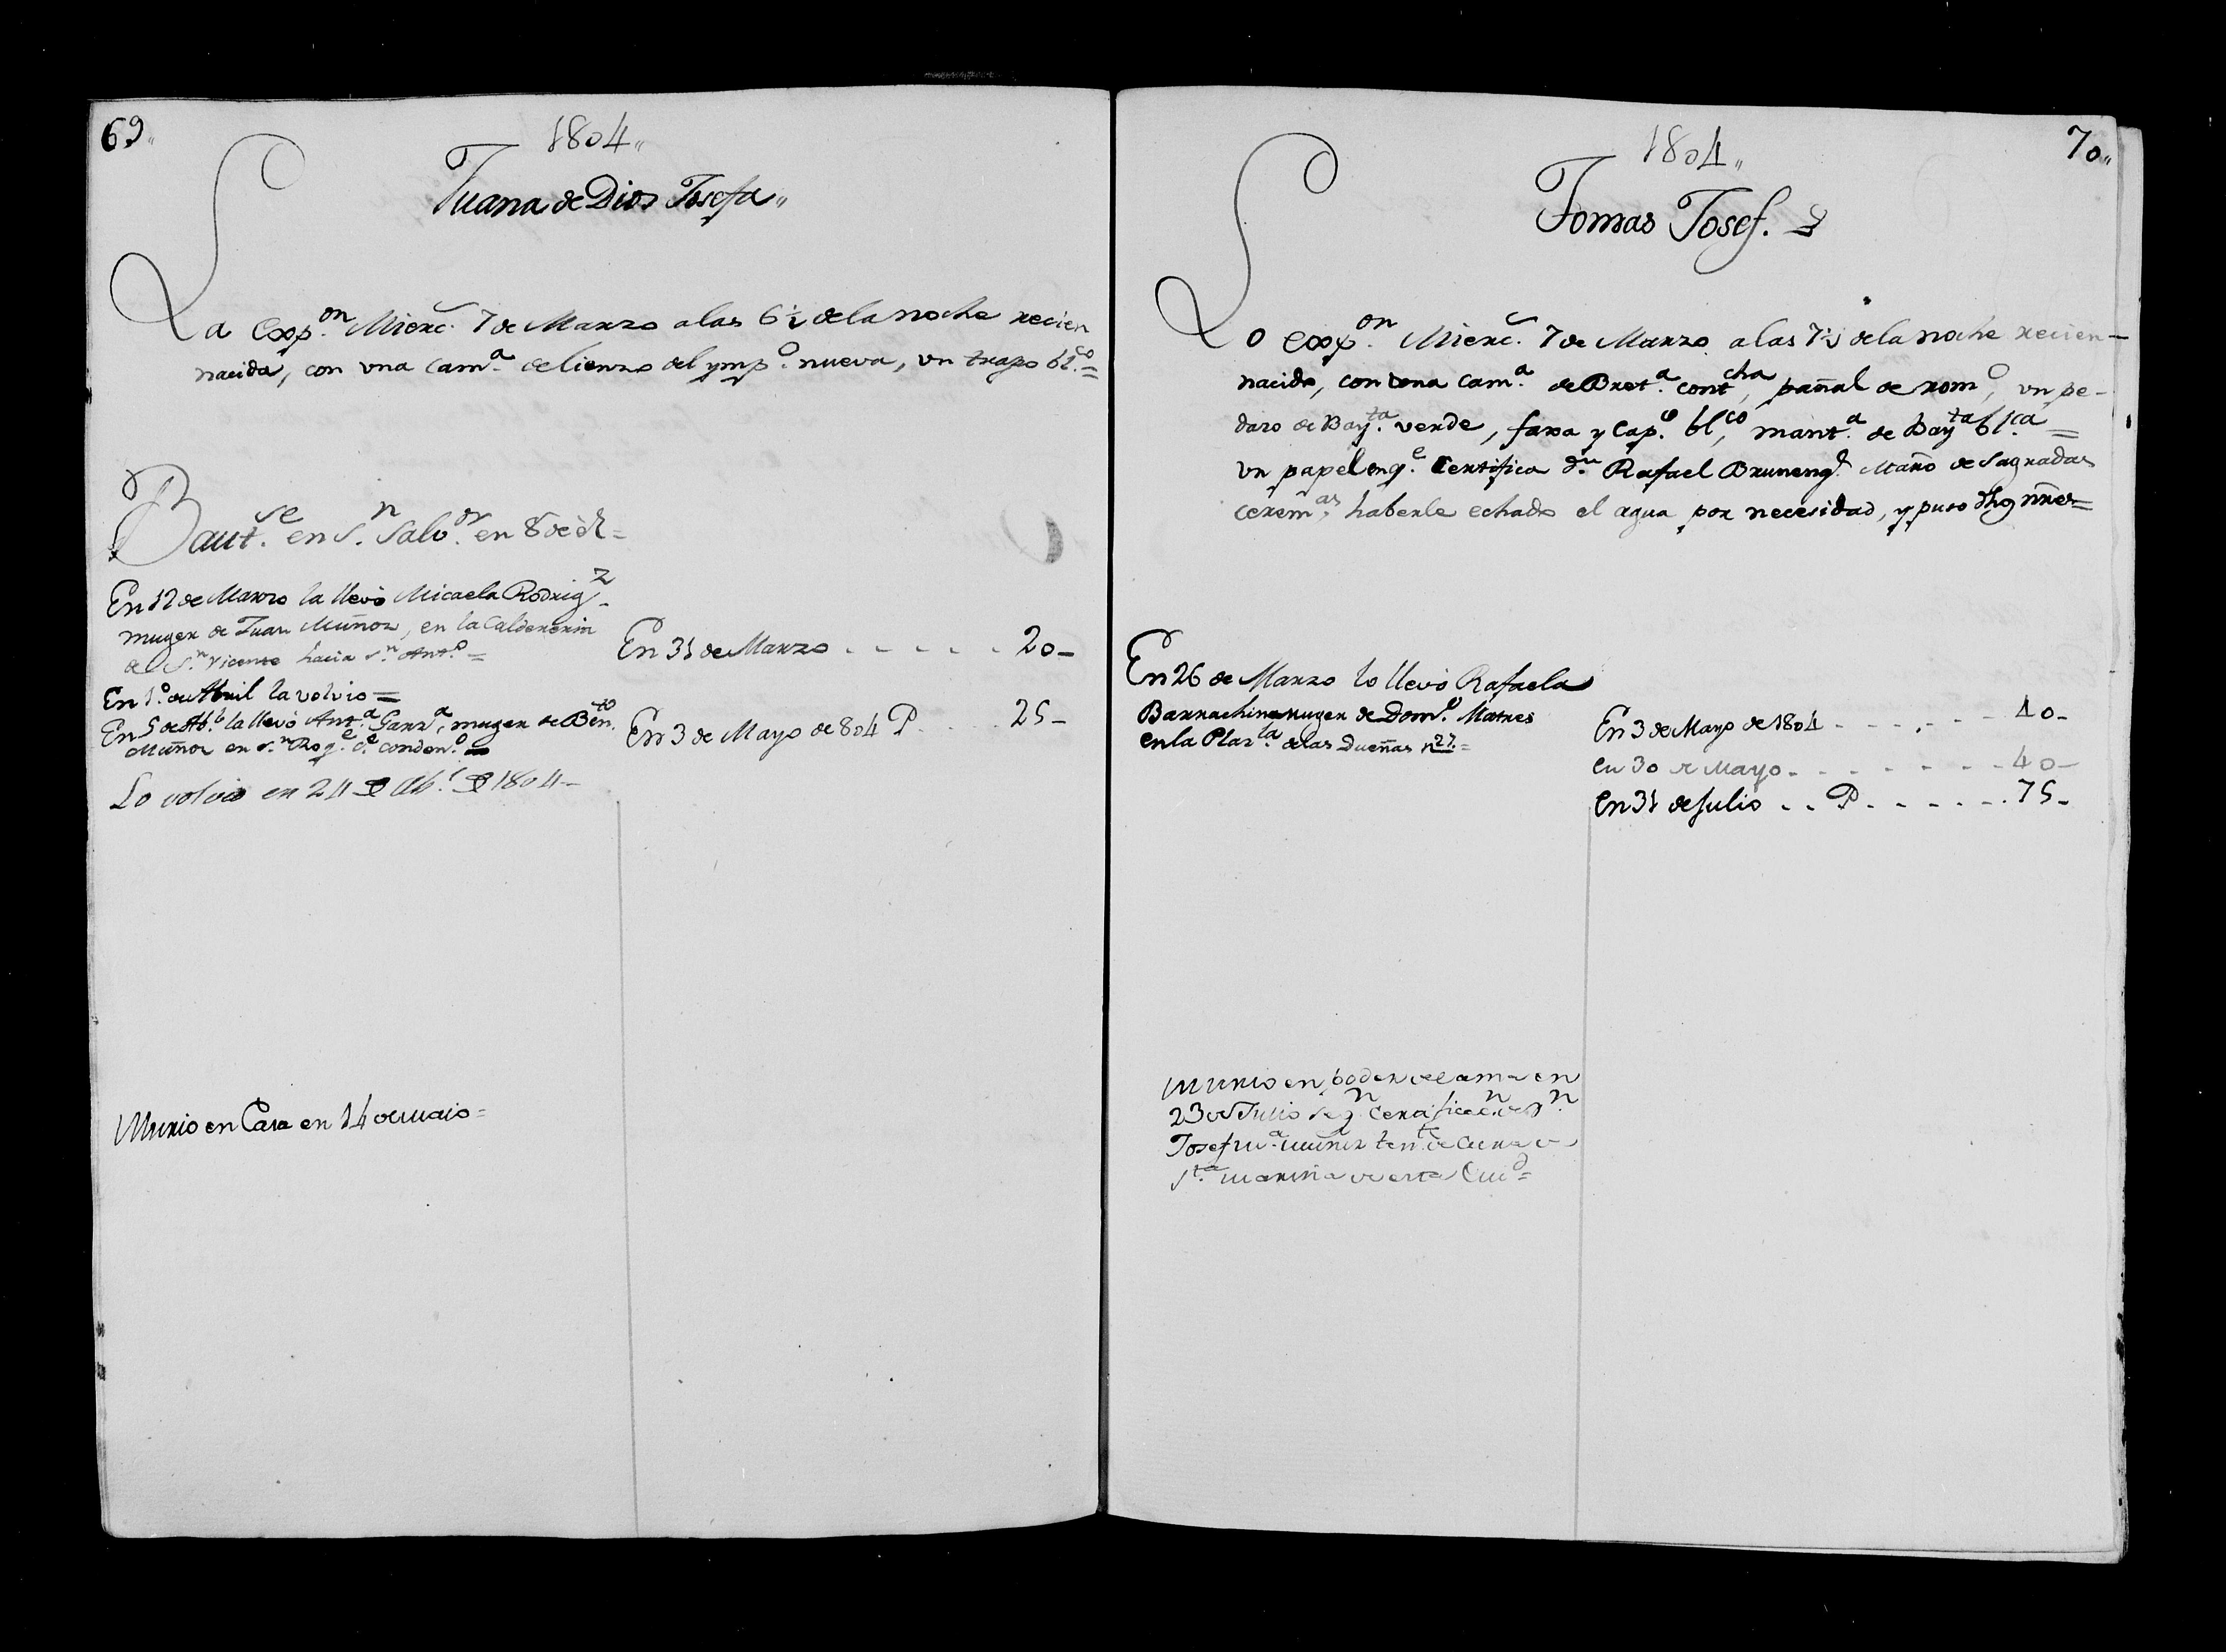 69„
1804„
Juana de Dios Josefa„
La Expon. Mierc. 7 de Marzo a las 6½ de la noche recien
nacida, con vna cama. de lienzo del ympo. nueva, vn trapo blco.=
Bautse. en Sn. Salvor. en 8 de
En 12 de Marzo la llevó Micaela Rodrigz
muger de Juan Muñoz, en la Caldereria
de Sn. Vicente hacia Sn. Anto.=
En 31 de Marzo . . . . . 20-
En 1º. de Abril la volvio=
En 5 de Abl. la llevó Anta. Garza, muger de Bento.
Muñoz en Sn. Roqe. ce. condeno.
En 3 de Mayo de 804 P . . . 25-
Lo volvio en 24 de Abl. de 1804-
Murio en Casa en 14 de maio=
70„
1804„
Tomas Josef.
Lo Expon. Mierc. 7 de Marzo a las 7½ de la noche recien-
nacido, con vna cama. de Breta. contcha, pañal de romo, vn pe-
dazo de Bayta. verde, faxa y capo. blco, manta. de Bayta blca=
vn papel en qe. Certifica dn. Rafael Bruneng Maño de Sagradas
ceremas. haberle echado el agua por necesidad, y puso dhos nres=
En 26 de Marzo lo llevó Rafaela
Barrachina muger de Domo. Matres
en la Plazla. de las Dueñas n 27.=
En 3 de Mayo de 1804 - - - - - - 40-
en 30 de Mayo - - - - - - - 40-
en 31 de julio . . P. - - - - - 75-
Murio en poder del ama en
23 de Julio segn. Certificacn. de Dn.
Josef Ma. Muñoz tente. de Cura de
Sta. Marina de esta Ciud=